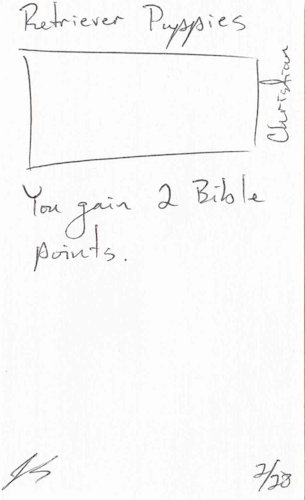 Retriever Puppies
Christian
You gain 2 Bible
points.
2/28